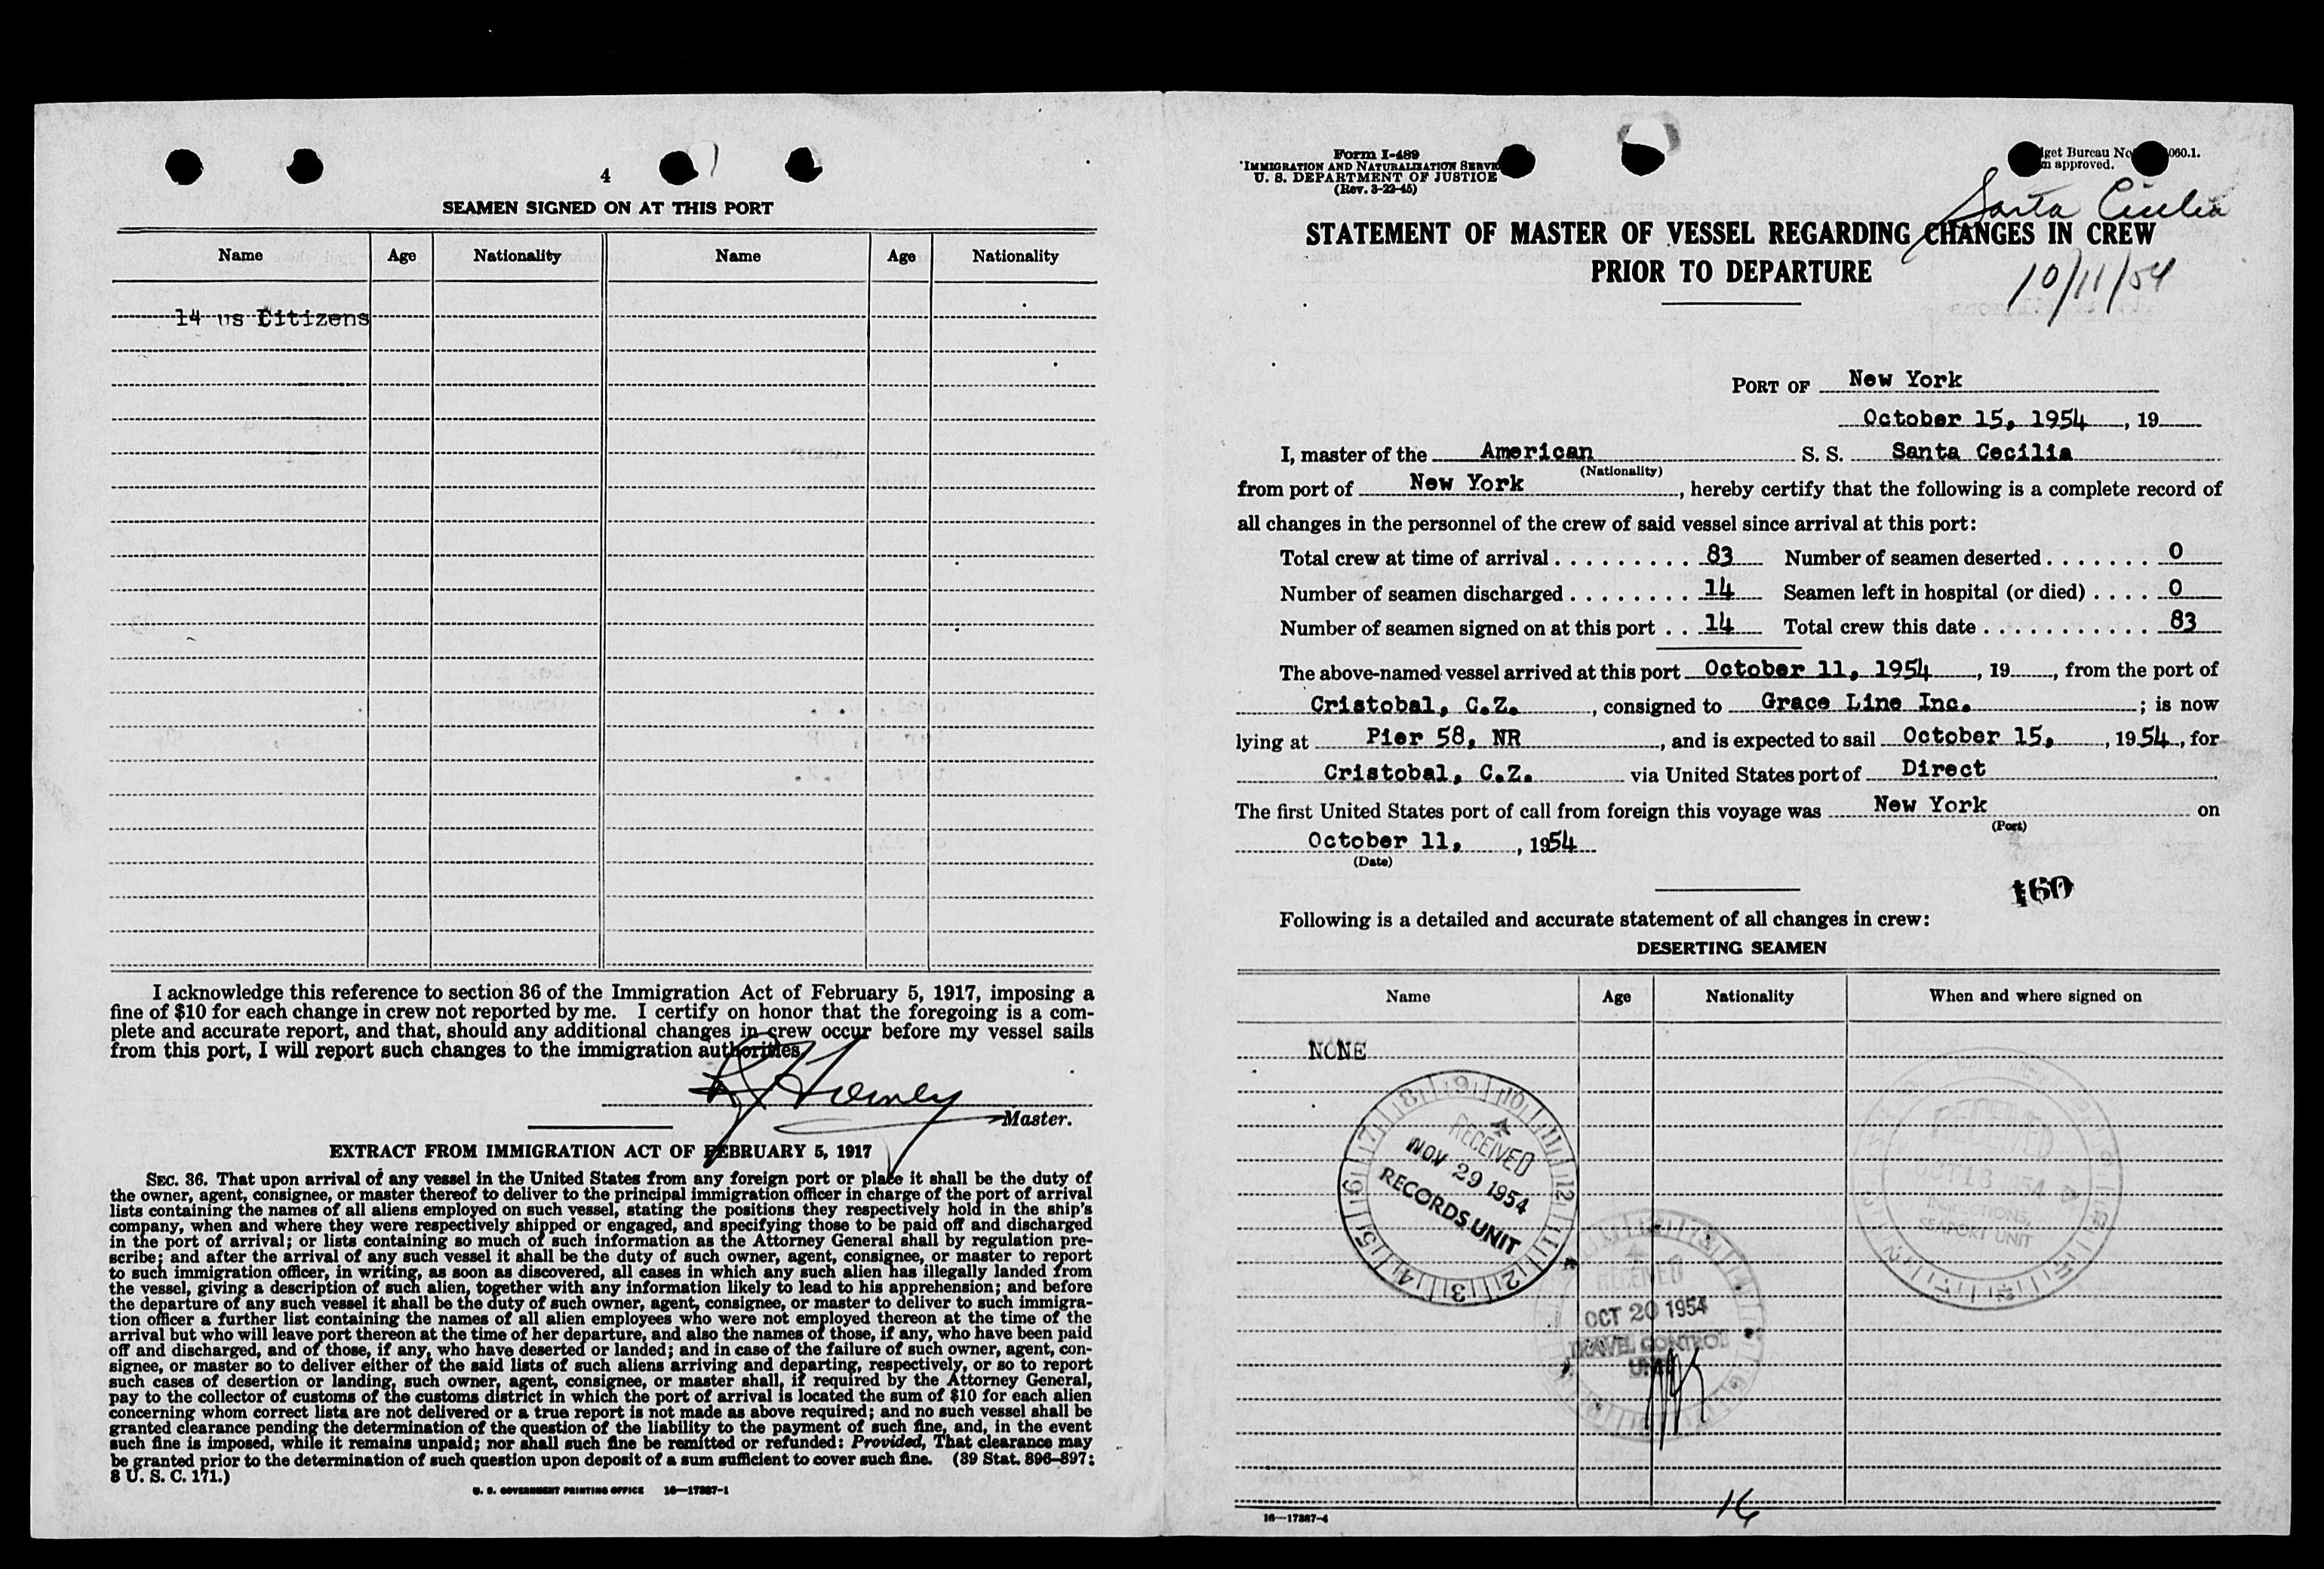 4
SEAMEN SIGNED ON AT THIS PORT
Name Age Nationality Name Age Nationality
14 us Citizens
I acknowledge this reference to section 36 of the Immigration Act of February 5, 1917, imposing a
fine of $10 for each change in crew not reported by me. I certify on honor that the foregoing is a com-
plete and accurate report, and that, should any additional changes in crew occur before my vessel sails
from this port, I will report such changes to the immigration authorities.
Master.
EXTRACT FROM IMMIGRATION ACT OF FEBRUARY 5, 1917
SEC. 36. That upon arrival of any vessel in the United States from any foreign port or place it shall be the duty of
the owner, agent, consignee, or master thereof to deliver to the principal immigration officer in charge of the port of arrival
lists containing the names of all aliens employed on such vessel, stating the positions they respectively hold in the ship's
company, when and where they were respectively shipped or engaged, and specifying those to be paid off and discharged
in the port of arrival; or lists containing so much of such information as the Attorney General shall by regulation pre-
scribe; and after the arrival of any such vessel it shall be the duty of such owner, agent, consignee, or master to report
to such immigration officer, in writing, as soon as discovered, all cases in which any such alien has illegally landed from
the vessel, giving a description of such alien, together with any information likely to lead to his apprehension; and before
the departure of any such vessel it shall be the duty of such owner, agent, consignee, or master to deliver to such immigra-
tion officer a further list containing the names of all alien employees who were not employed thereon at the time of the
arrival but who will leave port thereon at the time of her departure, and also the names of those, if any, who have been paid
off and discharged, and of those, if any, who have deserted or landed; and in case of the failure of such owner, agent, con-
signee, or master so to deliver either of the said lists of such aliens arriving and departing, respectively, or so to report
such cases of desertion or landing, such owner, agent, consignee, or master shall, if required by the Attorney General,
pay to the collector of customs of the customs district in which the port of arrival is located the sum of $10 for each alien
concerning whom correct lists are not delivered or a true report is not made as above required; and no such vessel shall be
granted clearance pending the determination of the question of the liability to the payment of such fine, and, in the event
such fine is imposed, while it remains unpaid; nor shall such fine be remitted or refunded: Provided, That clearance may
be granted prior to the determination of such question upon deposit of a sum sufficient to cover such fine. (39 Stat. 896–897;
8 U. S. C. 171.)
U. S. GOVERNMENT PRINTING OFFICE 16—17387-1
Form I-489
IMMIGRATION AND NATURALIZATION
U. S. DEPARTMENT OF JUSTICE
(Rev. 3-22-45)
get Bureau No 060.1.
approved.
Santa Cecilia
STATEMENT OF MASTER OF VESSEL REGARDING CHANGES IN CREW
PRIOR TO DEPARTURE
10/11/54
PORT OF New York
October 15, 1954, 19
I, master of the American S. S. Santa Cecilia
(Nationality)
from port of New York, hereby certify that the following is a complete record of
all changes in the personnel of the crew of said vessel since arrival at this port:
Total crew at time of arrival . . . . . . . . . 83 Number of seamen deserted . . . . . . . 0
Number of seamen discharged . . . . . . . . 14 Seamen left in hospital (or died) . . . . 0
Number of seamen signed on at this port . . 14 Total crew this date . . . . . . . . . . . 83
The above-named vessel arrived at this port October 11, 1954, 19, from the port of
Cristobal, C.Z., consigned to Grace Line Inc.; is now
lying at Pier 58, NR, and is expected to sail October 15, , 1954, for
Cristobal, C.Z. via United States port of Direct
The first United States port of call from foreign this voyage was New York on
(Port)
October 11, , 1954
(Date)
160
Following is a detailed and accurate statement of all changes in crew:
DESERTING SEAMEN
Name Age Nationality When and where signed on
NONE
RECEIVED
NOV 29 1954
RECORDS UNIT
RECEIVED
OCT 18 1954
SEAPORT UNIT
RECEIVED
OCT 20 1954
TRAVEL CONTROL
UNIT
16
16—17387-4